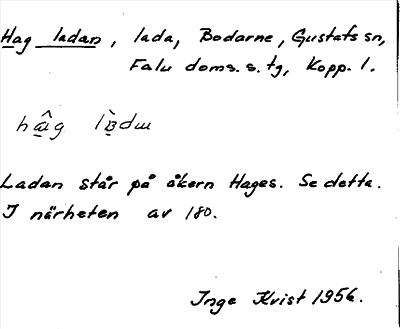 Hag ladan, lada, Bodarne, Gustafs sn,
Falu doms. s. tg, Kopp. l.
Ladan står på åkern Hages. Se detta.
I närheten av 180.
Inge Kvist 1956.